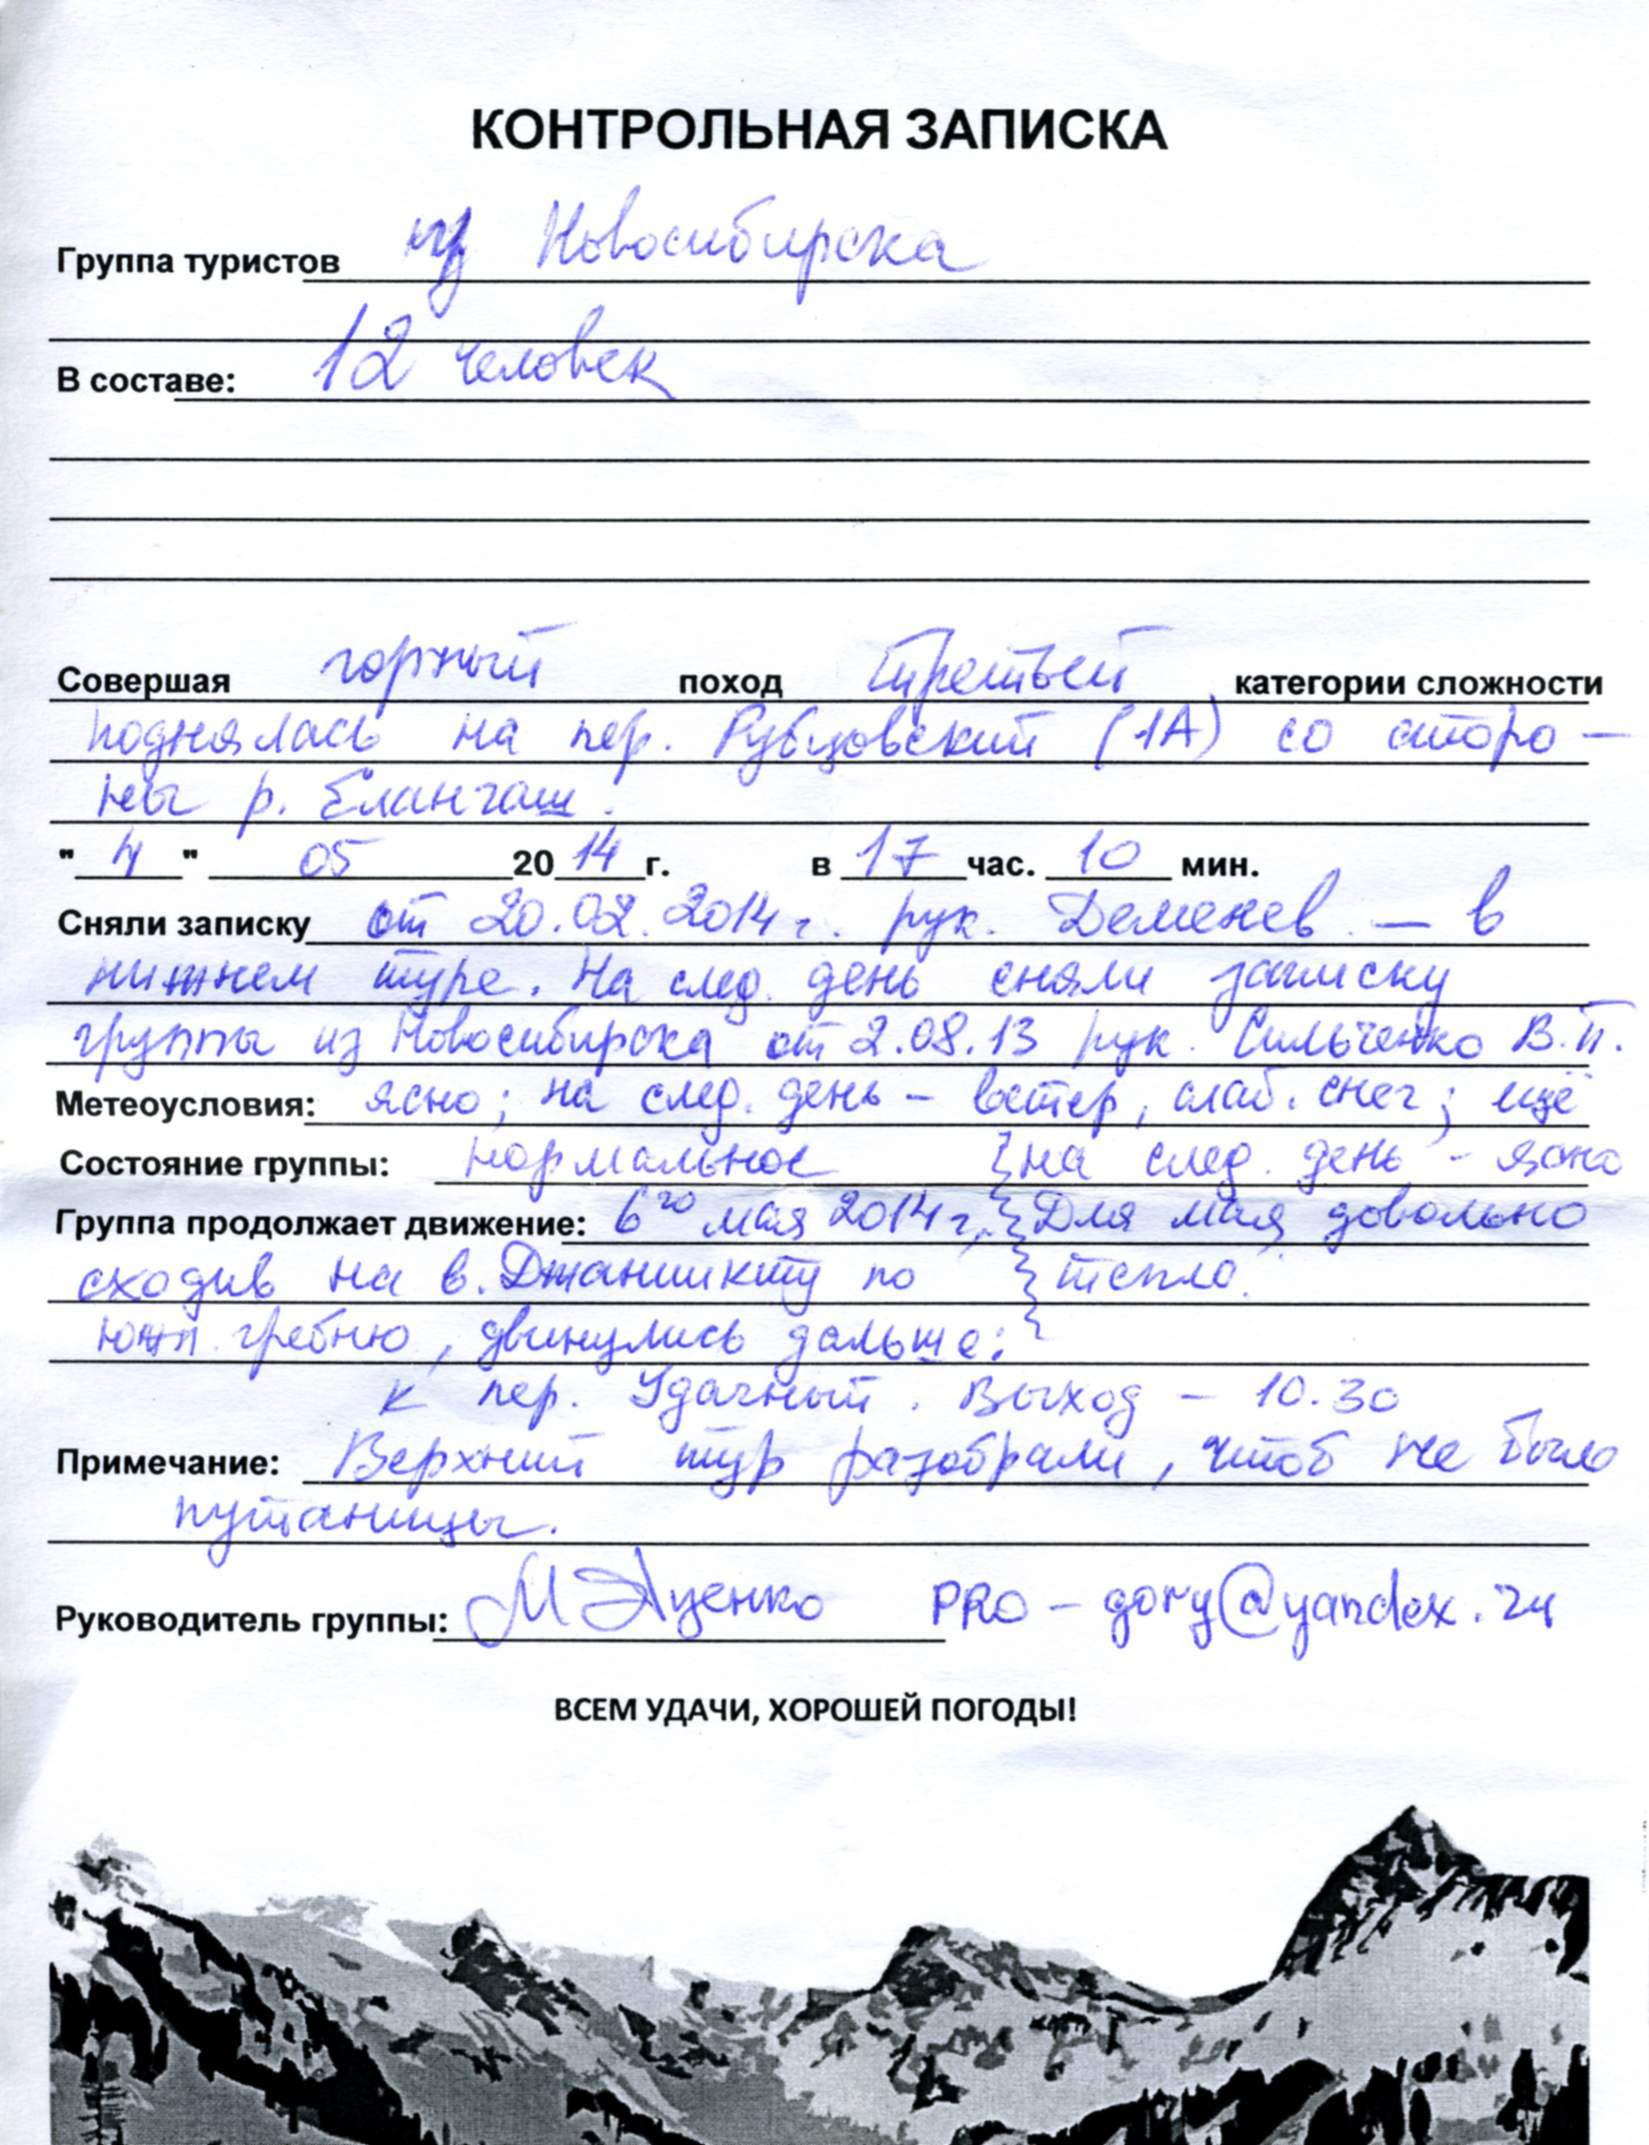 КОНТРОЛЬНАЯ ЗАПИСКА
Группа туристов из Новосибирска
В составе: 12 человек
Совершая горный поход третьей категории сложности
поднялась на пер. Рубцовский (1А) со сторо-
ны р. Елангаш.
"4" 05 2014 г. в 17 час. 10 мин.
Сняли записку от 20.02.2014 г. рук. Деменев - в
нижнем туре. На след. день сняли записку
группы из Новосибирска от 2.08.13 рук. Сильченко В.П.
Метеоусловия: ясно; на след. день - ветер, слаб. снег; ещё
Состояние группы: нормальное } на след. день - ясно
Группа продолжает движение: 6го мая 2014 г, } Для мая довольно
сходив на в. Джаниикту по } тепло.
южн. гребню, двинулись дальше:
к пер. Удачный. Выход - 10.30
Примечание: Верхний тур разобрали, чтоб не было
путаницы.
Руководитель группы: PRO-gory@yandex.ru
ВСЕМ УДАЧИ, ХОРОШЕЙ ПОГОДЫ!